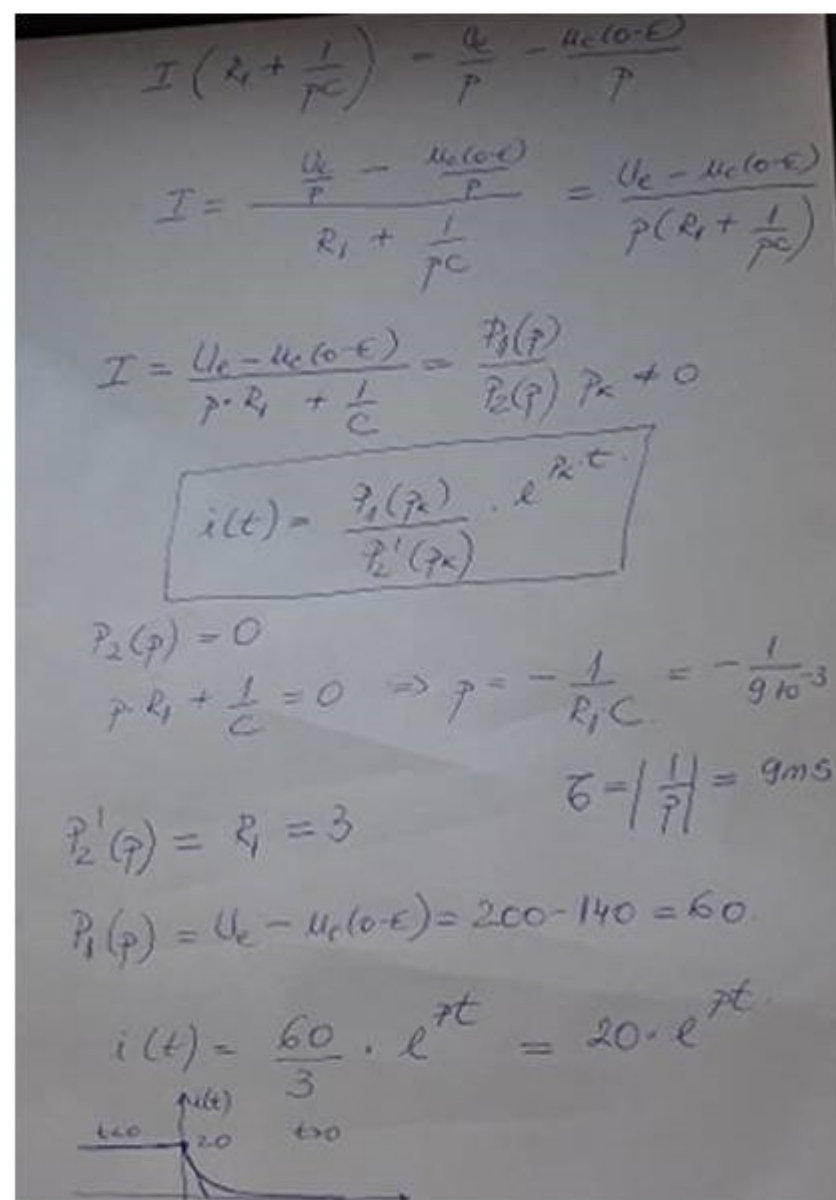 I(R₁ + 1/pC) - Ue/p - uc(0-ε)/p
I = (Ue/p - uc(0-ε)/p) / (R₁ + 1/pC) = (Ue - uc(0-ε)) / (p(R₁ + 1/pC))
I = (Ue - uc(0-ε)) / (p·R₁ + 1/C) = P₁(p) / P₂(p) pₖ ≠ 0
i(t) = P₁(pₖ) / P₂'(pₖ) · e^(pₖ·t)
P₂(p) = 0
p·R₁ + 1/C = 0 ⇒ p = - 1/(R₁C) = - 1/(9 10⁻³)
τ = |1/p| = 9ms
P₂'(p) = R₁ = 3
P₁(p) = Ue - uc(0-ε) = 200-140 = 60
i(t) = 60/3 · e^(pt) = 20·e^(pt)
i(t)
t<0 20 t>0